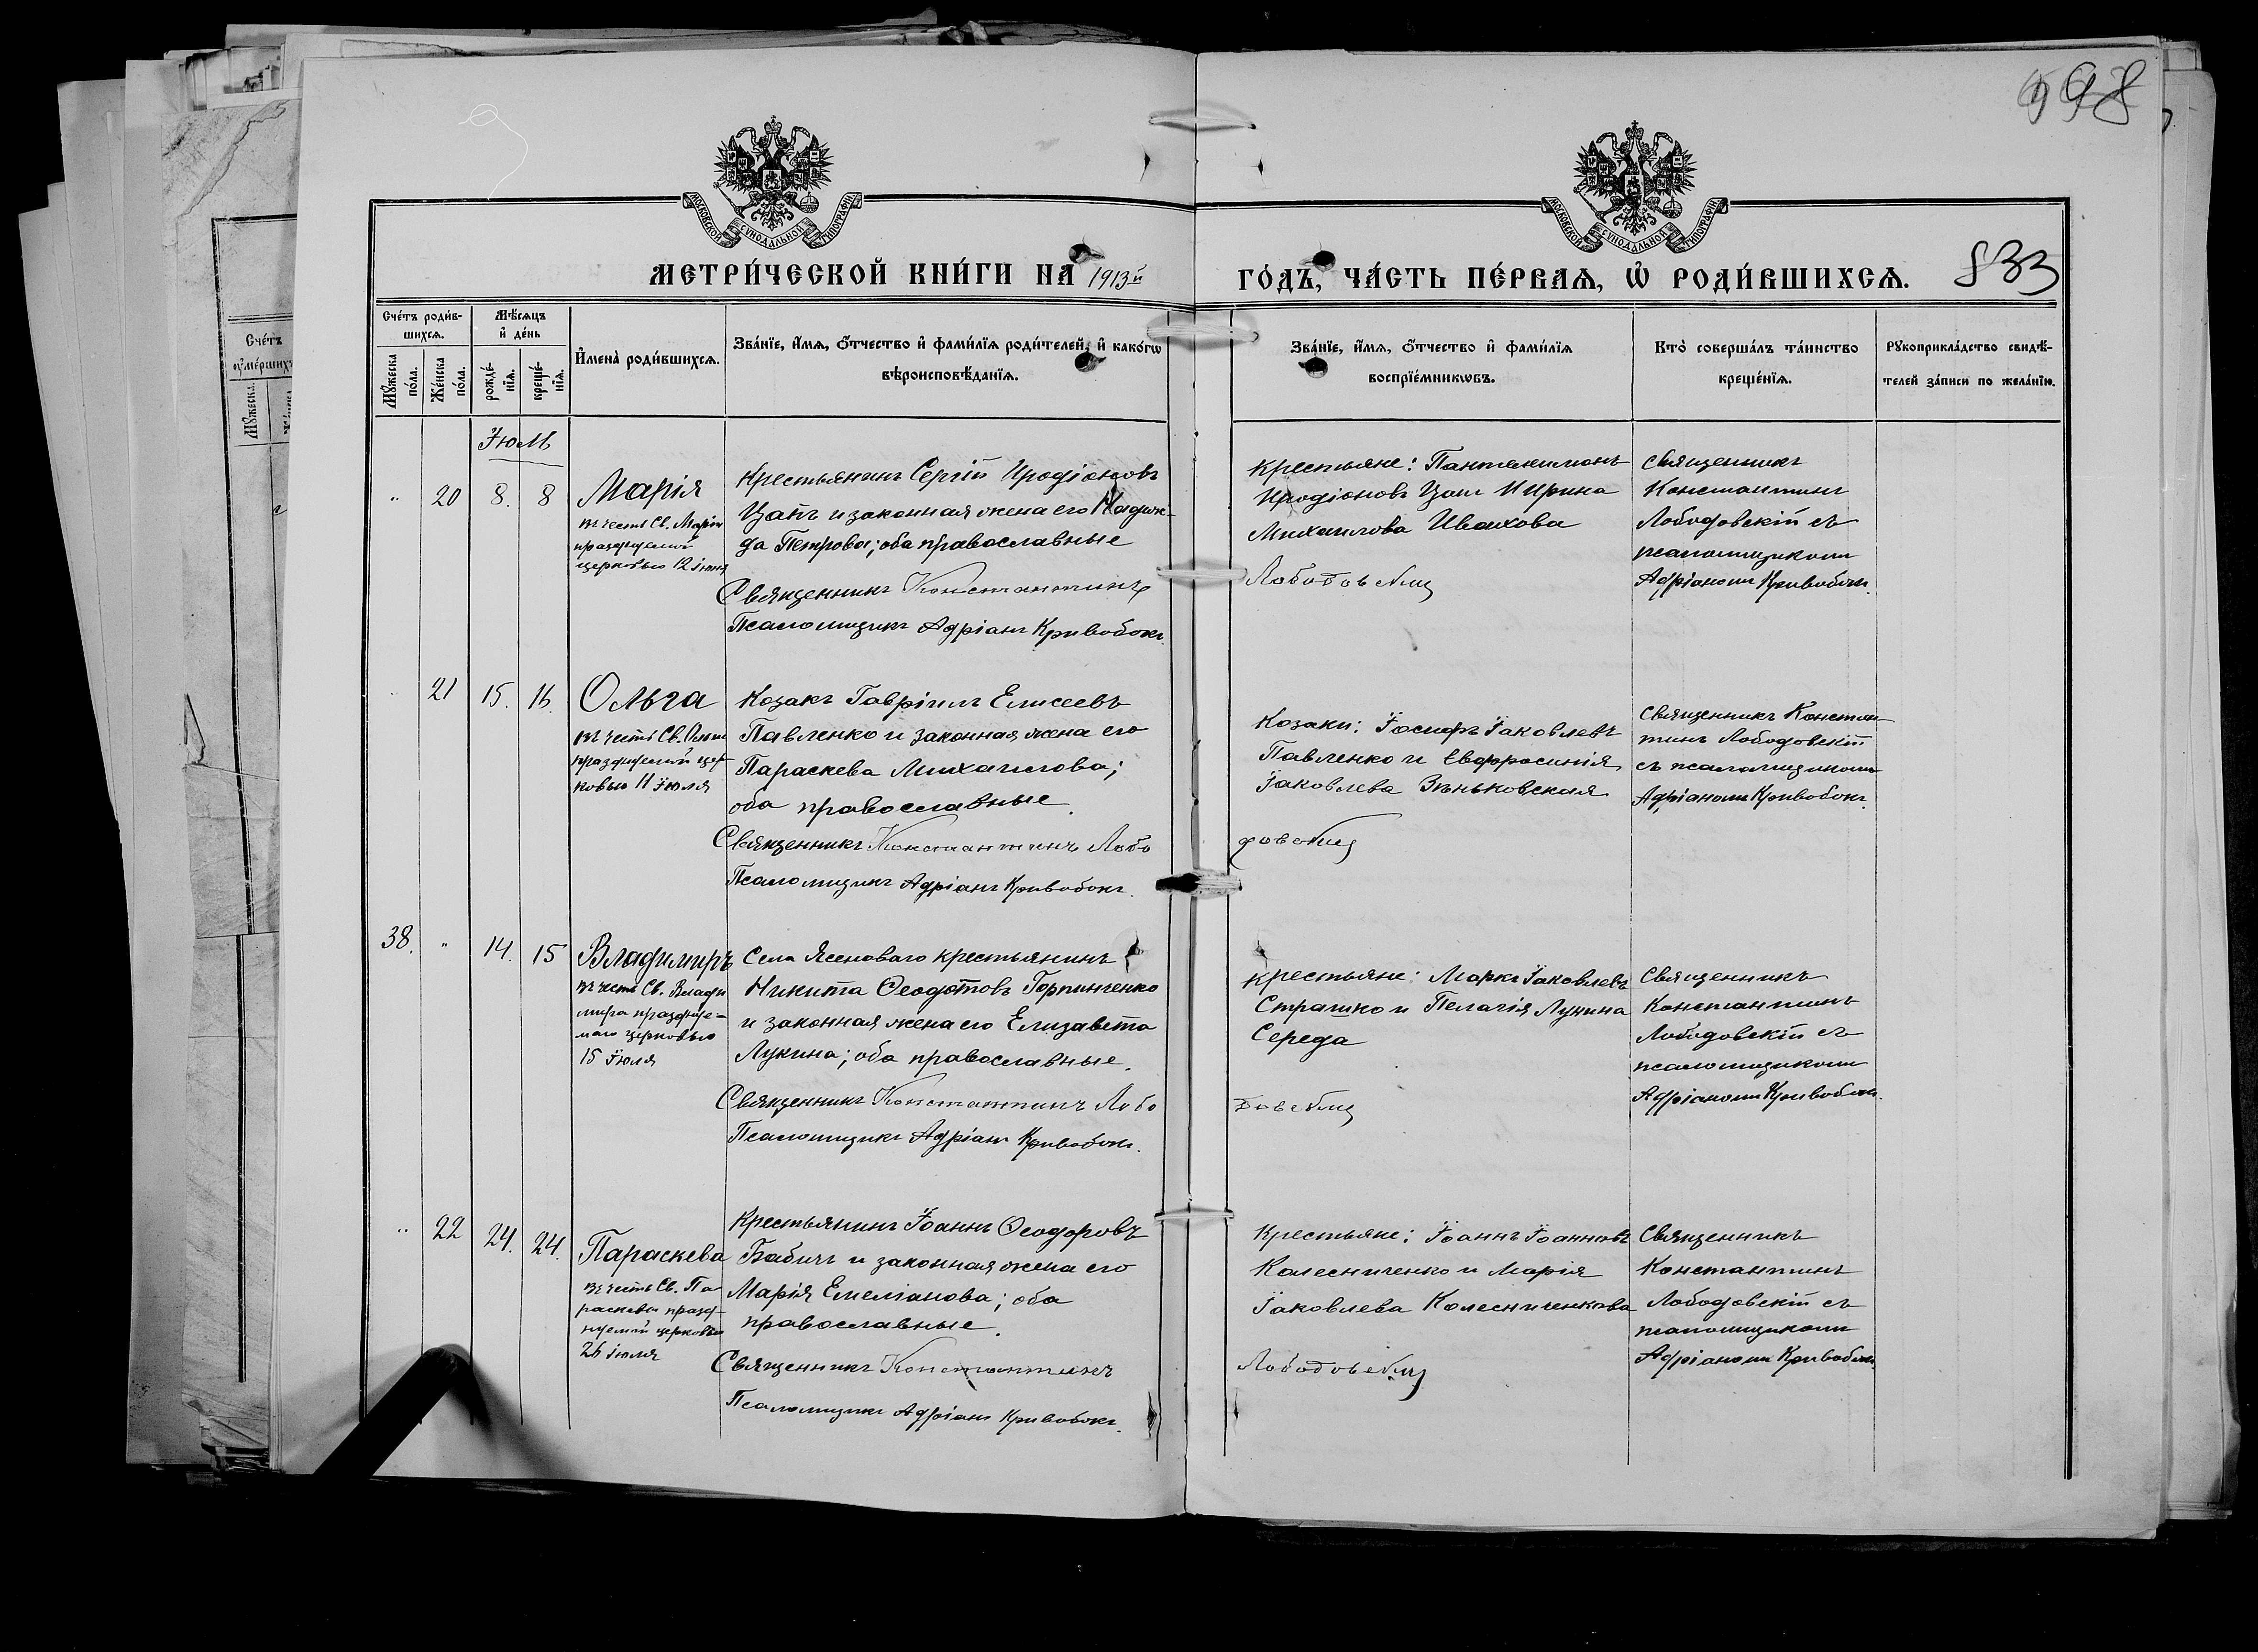 998
МОСКОВСКОЙ СУНОДАЛЬНОЙ ТИПОГРАФІИ
МОСКОВСКОЙ СУНОДАЛЬНОЙ ТИПОГРАФІИ
МЕТРИ́ЧЕСКОЙ КНИ́ГИ НА 1913й
ГО́ДЪ, ЧА́СТЬ ПЕ́РВАѦ, Ѡ҆ РОДИ́ВШИХСѦ. 833
Сче́тъ роди́в-
шихсѧ.
Мѣ́сѧцъ
и҆ де́нь
Мꙋ́жеска
по́ла.
Же́нска
по́ла.
рожде́-
нїѧ.
креще́-
нїѧ.
И҆мена̀ роди́вшихсѧ.
Зва́нїе, и҆́мѧ, ѻ҆́тчество и҆ фами́лїѧ роди́телей, и҆ како́гѡ
вѣроисповѣ́данїѧ.
Зва́нїе, и҆́мѧ, ѻ҆́тчество и҆ фами́лїѧ
воспрїе́мникѡвъ.
Кто̀ соверша́лъ та́инство
креще́нїѧ.
Рꙋкоприкла́дство свидѣ́-
телей за́писи по жела́нїю.
Сче́тъ
ᲂу҆ме́рших
Мꙋ́жеска
Іюль
" 20 8. 8 Марія
въ честь Св. Маріи
празднуемой
церковью 12 іюля
Крестьянинъ Сергій Иродіоновъ
Цапъ и законная жена его Надеж-
да Петрова; оба православные
Священникъ Константинъ
Псаломщикъ Адріанъ Кривобокъ.
Крестьяне: Пантелимонъ
Иродіоновъ Цапъ и Ирина
Михаилова Ивахова
Лободовскій
Священникъ
Константинъ
Лободовскій съ
псаломщикомъ
Адріаномъ Кривобок.
21 15. 16. Ольга
въ честь Св. Ольги
празднуемой цер-
ковью 11 Іюля
Козакъ Гавріилъ Елисеевъ
Павленко и законная жена его
Параскева Михаилова;
оба православные.
Священникъ Константинъ Лобо
Псаломщикъ Адріанъ Кривобокъ.
Козаки: Іосифъ Іаковлевъ
Павленко и Евфросинія
Іаковлева Зѣньковская
довскій
Священникъ Констан-
тинъ Лободовскій
съ псаломщикомъ
Адріаномъ Кривобок.
38. " 14. 15 Владимиръ
въ честь Св. Влади
мира праздну-
маго церковью
15 Іюля
Села Ясеноваго крестьянинъ
Никита Ѳеодотовъ Горпинченко
и законная жена его Елизавета
Лукина; оба православные.
Священникъ Константинъ Лобо
Псаломщикъ Адріанъ Кривобокъ.
Крестьяне: Маркъ Іаковлевъ
Страшко и Пелагія Лукина
Середа
довскій
Священникъ
Константинъ
Лободовскій съ
псаломщикомъ
Адріаномъ Кривобок.
" 22 24. 24. Параскева
въ честь Св. Па
раскевы празд-
нуемой церковью
26 іюля
Крестьянинъ Іоаннъ Ѳеодоровъ
Бабичъ и законная жена его
Марія Емеліанова; оба
православные.
Священникъ Константинъ
Псаломщикъ Адріанъ Кривобокъ.
Крестьяне: Іоаннъ Іоанновъ
Колесниченко и Марія
Іаковлева Колесниченкова
Лободовскій
Священникъ
Константинъ
Лободовскій съ
псаломщикомъ
Адріаномъ Кривобок.